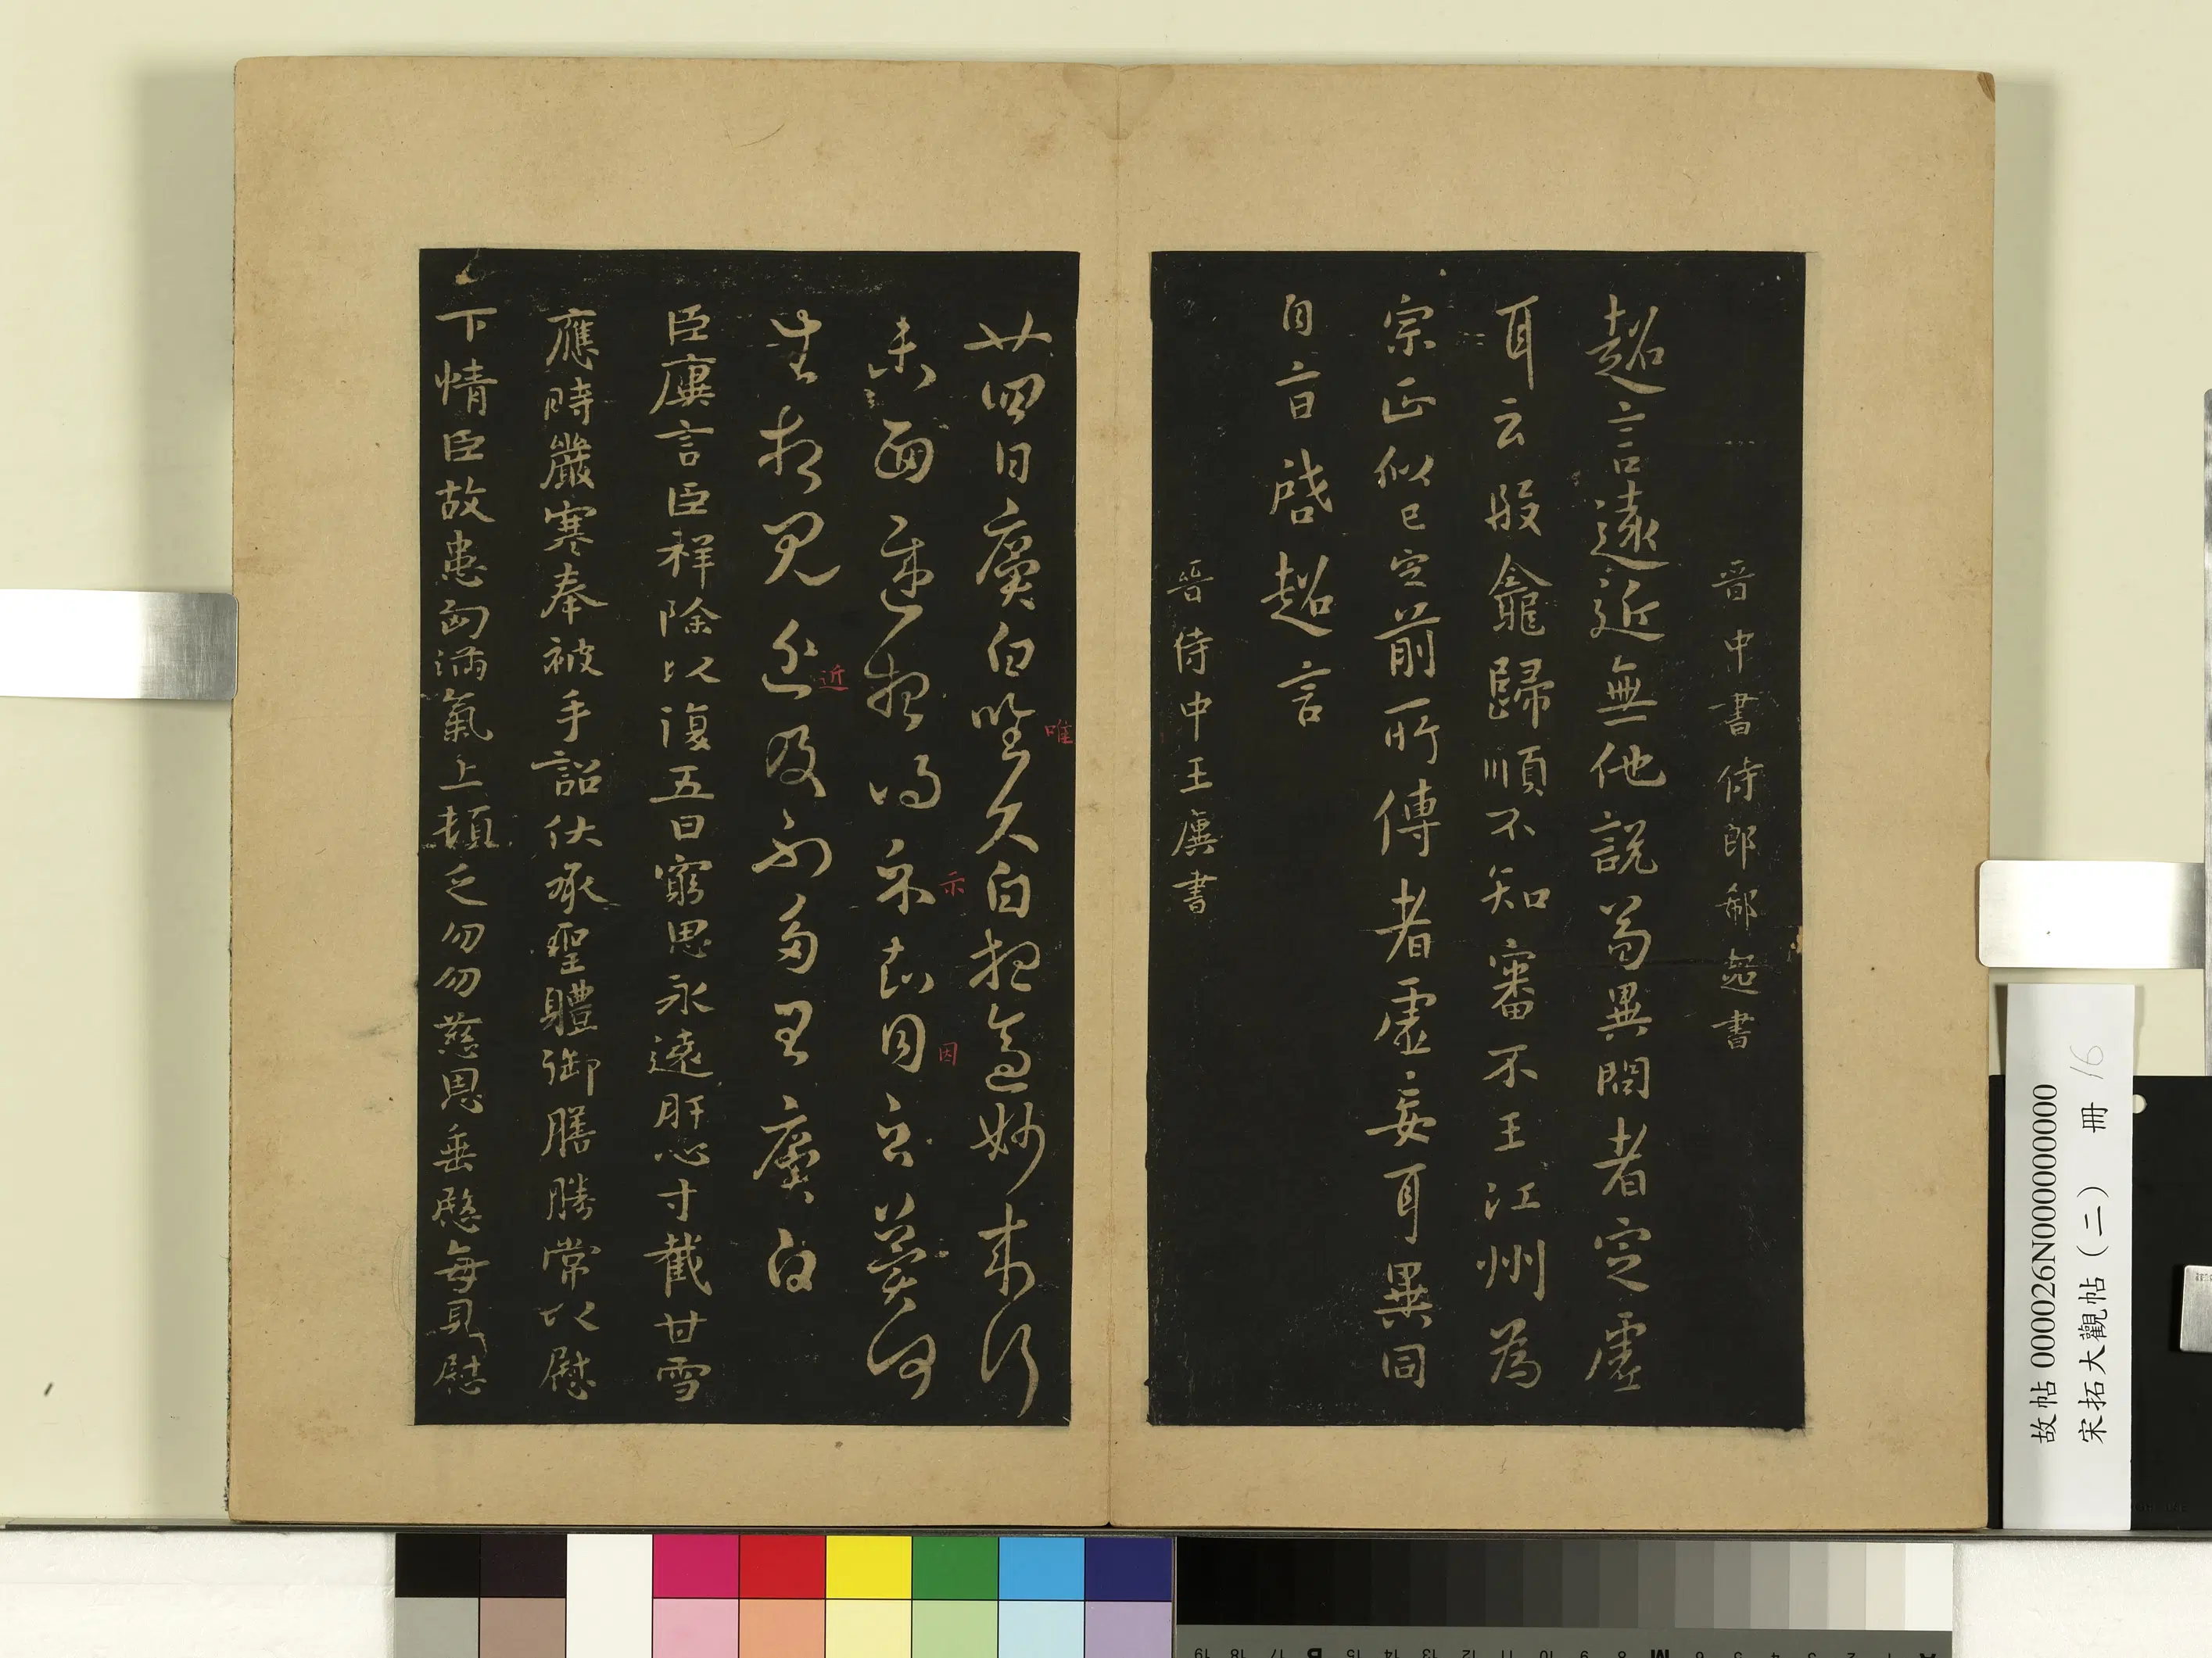 晉中書侍郎郗超書
超言遠近無他說為異問者定虛
耳云殷龕歸順不知審不王江州為
宗正似已定前所傳者虛妄耳異同
自旨啓超言
晉侍中王廙書
廿四日廙白唯久白想妙未行
唯
未面遲想得示知因何
示
因
生想見近及不多王廙白
近
臣廙言臣祥除以復五日窮思永遠肝心寸截甘雪
應時嚴寒奉被手詔伏承聖體御膳勝常以慰
下情臣故患匈滿氣上頓乏勿勿慈恩垂愍每見慰
故帖 000026N000000000
宋拓大觀帖（二） 冊 16